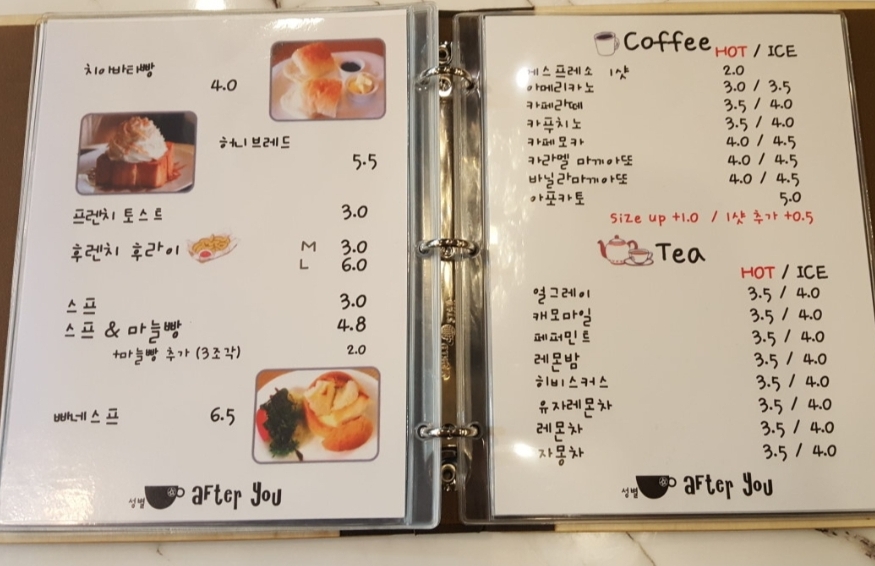 치아바타빵
4.0
허니브레드
5.5
프렌치 토스트 3.0
후렌치 후라이 M 3.0
L 6.0
스프 3.0
스프 & 마늘빵 4.8
+마늘빵 추가 (3조각) 2.0
빠네스프 6.5
성별 after you
Coffee HOT / ICE
에스프레소 1샷 2.0
아메리카노 3.0 / 3.5
카페라떼 3.5 / 4.0
카푸치노 3.5 / 4.0
카페모카 4.0 / 4.5
카라멜 마끼아또 4.0 / 4.5
바닐라마끼아또 4.0 / 4.5
아포카토 5.0
Size up +1.0 / 1샷 추가 +0.5
Tea
HOT / ICE
얼그레이 3.5 / 4.0
캐모마일 3.5 / 4.0
페퍼민트 3.5 / 4.0
레몬밤 3.5 / 4.0
히비스커스 3.5 / 4.0
유자레몬차 3.5 / 4.0
레몬차 3.5 / 4.0
자몽차 3.5 / 4.0
성별 after you